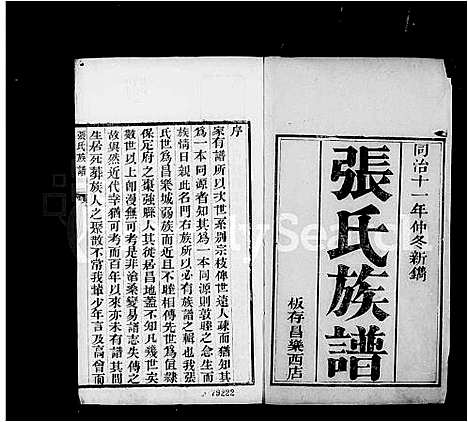 同治十一年仲冬新鐫
張氏族譜
板存昌樂西店
序
家有譜所以次世系別宗枝俾世遠人疎而猶知其
為一本同源者知其為一本同源則敦睦之念生而
族情日親此名門右族所以必有族譜之輯也我張
氏世為昌樂城弱族而近且相傳先世為直隸
保定府之棗強縣人其徙居昌地蓋不知凡幾世矣
數世以上聞漫無可考是非滄桑變易譜志失傳之
故與然近代幸猶可考而百年以來亦未有譜其間
生居死葬族人之聚散不常我輩少年言及高曾而
張氏族譜
79222